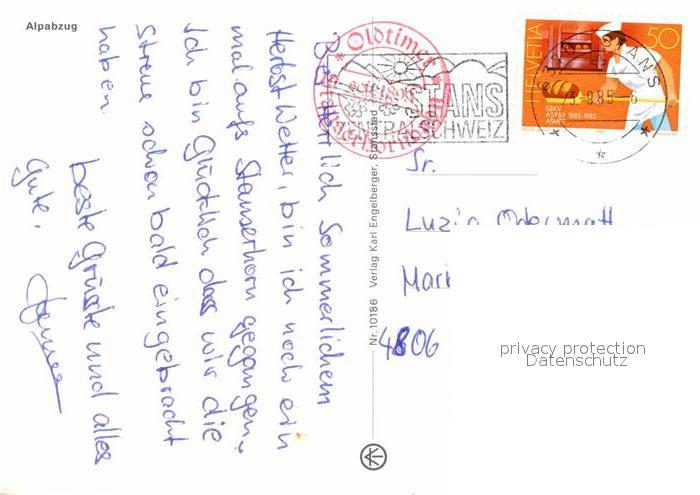 Alpabzug
Bei Herrlich Sommerlichem
Herbst Wetter, bin ich noch ein
mal aufs Stanserhorn gegangen.
Ich bin Glücklich dass wir die
Streue schon bald eingebracht
haben.
beste Grüsse und alles
Gute.
Nr. 10186 Verlag Karl Engelberger, Stansstad
* Oldtimer *
Stanserhornbahn
STANS
ZENTRALSCHWEIZ
HELVETIA
50
SBKV
ASPBP 1885-1985
ASMPP
STANS
85
Fr.
Luzia Odermatt
Mari
4806
privacy protection
Datenschutz